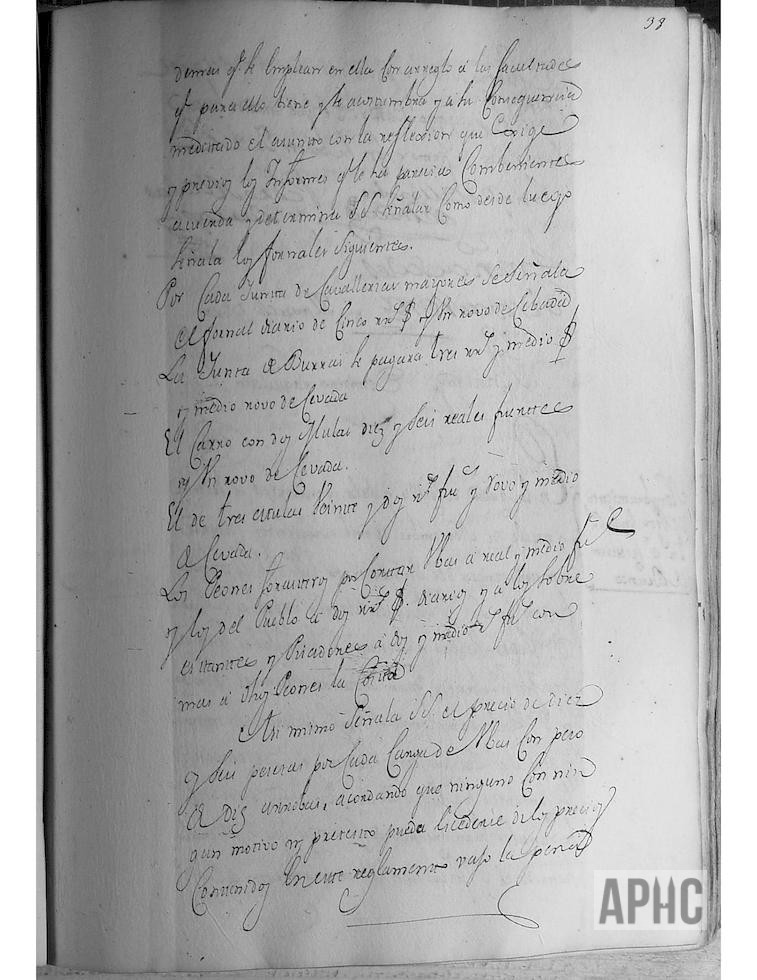 38
demas qe se Emplean en ella Con arreglo a las facultades
qe para ello tiene y se acostumbra y a su Consequencia
meditado el asunto con la reflecsion que Exige
y previos los Informes qe le ha parecido Combenientes
acuerda y determina SS. señalar Como desde luego
señala los fornales siguientes.
Por Cada Junta de Cavallerias mayores se señala
el fornal diario de Cinco rrs y Un rovo de Cebada
La Junta de Burras se pagara tres rrs y medio
y medio rovo de Cevada
El Carro con dos Mulas diez y seis reales fuertes
y Un rovo de Cevada.
El de tres mulas Veinte y dos rs fus y rovo y medio
de Cevada.
Los Peones forasteros por Cortar Ubas a real y medio fte
y los del Pueblo a dos rrs diarios y a los sobre
estantes y Pisadores a dos y medio rs fus con
mas a dhos Peones la
Asi mismo señala SS. el precio de diez
y seis pesetas por Cada Carga de Ubas Con peso
de diez arrobas, acordando que ninguno Con nin
gun motivo ni pretesto pueda Excederse de los precios
Contenidos En este reglamento vajo la pena
APHC